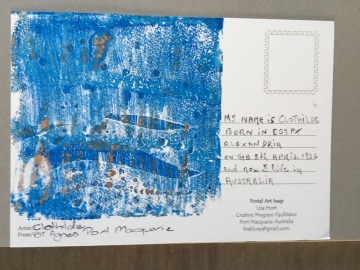 MY NAME is CLOTHILDE
BORN IN EGYPT
ALEXANDRIA
ON THE 3rd APRIL 1926
and now I live in
AUSTRALIA
Postal Art Swap
Lisa Hort
Creative Program Facilitator
Port Macquarie, Australia
Artist: Clothilde
From: St Agnes Port Macquarie